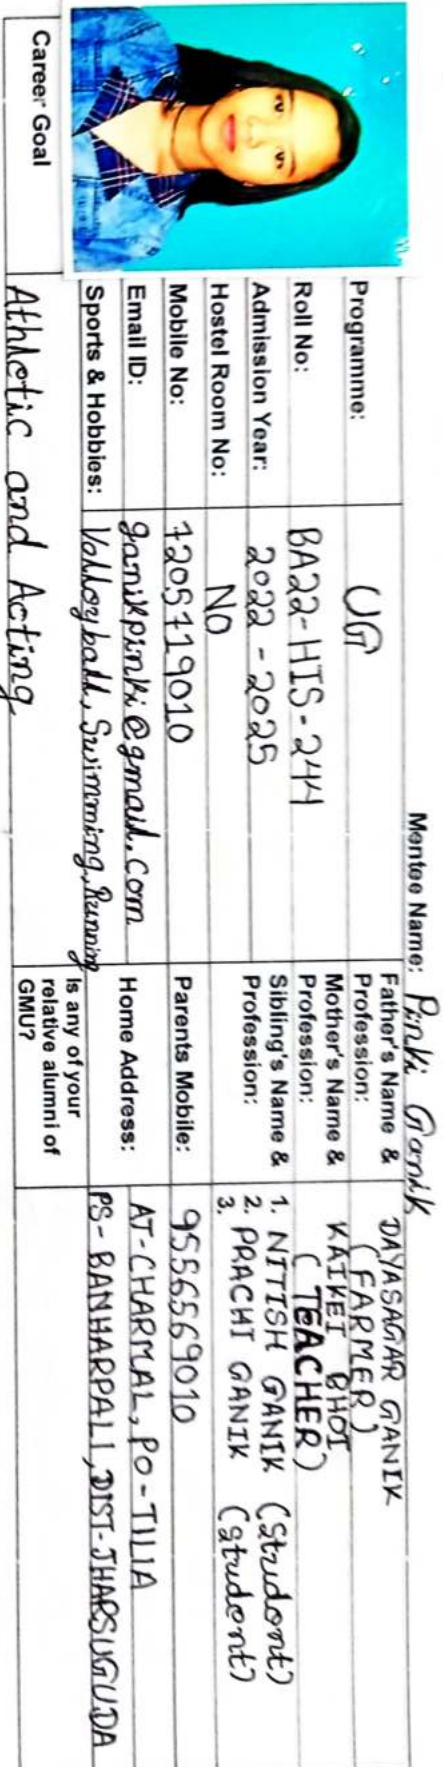 Mentee Name: Pinki Ganik
Programme: UG
Roll No: BA22-HIS-244
Admission Year: 2022 - 2025
Hostel Room No: NO
Mobile No: 7205719010
Email ID: ganikpinki@gmail.com
Sports & Hobbies: Valleyball, Swimming, Running
Career Goal Athletic and Acting
Father's Name & Profession: DAYASAGAR GANIK (FARMER)
Mother's Name & Profession: KAIKEI BHOI (TEACHER)
Sibling's Name & Profession: 1. NITISH GANIK (Student)
2. PRACHI GANIK (Student)
3.
Parents Mobile: 9556569010
Home Address: AT-CHARMAL, PO-TILIA
PS-BANHARPALI, DIST-JHARSUGUDA
Is any of your
relative alumni of
GMU?